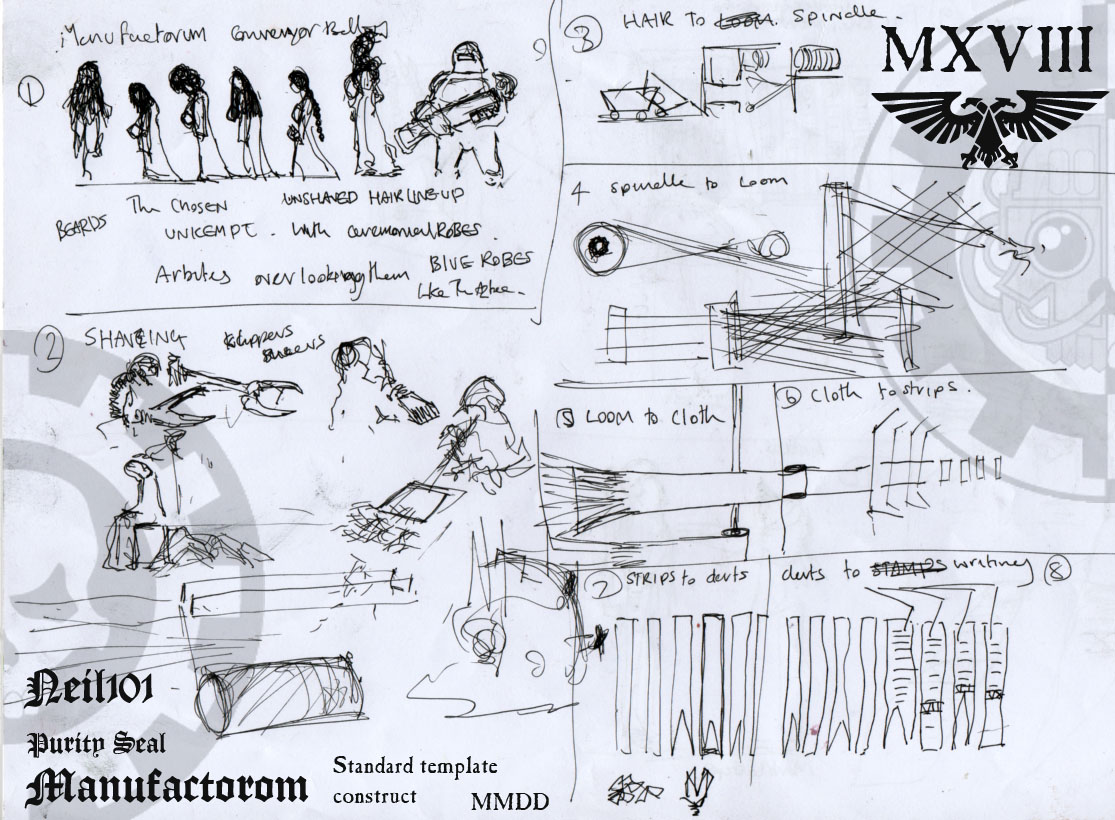 Manufactorum Conveyor Belt
1
BEARDS
The CHOSEN
UNSHAVED HAIR LINE-UP
UNKEMPT. With ceremonial ROBES.
Arbites overlooking them
BLUE ROBES
Like The
2 SHAVEING
Klippers
3 HAIR TO LOOM. SPINDLE.
MXVIII
4 spindle to Loom
5 LOOM TO CLOTH
6 CLOTH to strips.
7 STRIPS to dents
dents to STAMPS writing 8
Neil101
Purity Seal
Manufactorom
Standard template
construct
MMDD